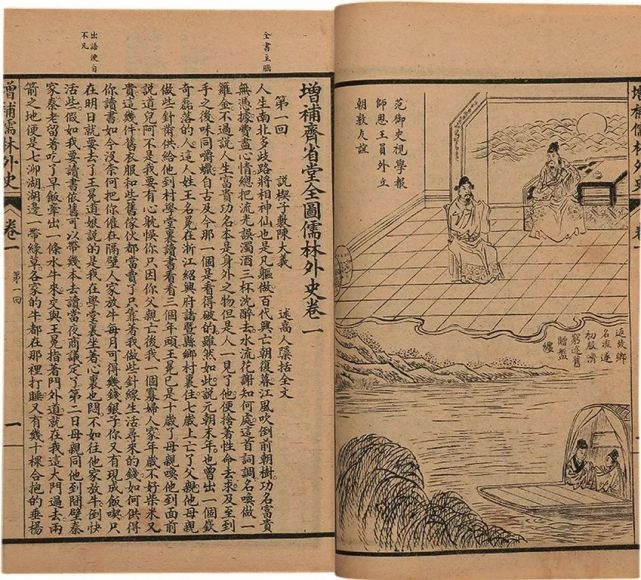 范御史視學報
師恩王員外立
朝敦友誼
返故鄉
名流遂
初服濟
窮途舊
贈盤
纏
全書主腦
出語便自
不凡
增補齊省堂全圖儒林外史卷一
第一回 說楔子敷陳大義 述高人隱括全文
人生南北多歧路將相神仙也是凡軀做百代興亡朝復暮江風吹倒前朝樹功名富貴
無憑據費盡心情總把流光誤濁酒三杯沈醉去水流花謝知何處這首詞調名喚做一
蘿金不過說人生富貴功名本是身外之物但是人一見了他便捨著性命去求及至到
手之後味同嚼蠟自古及今那一個是看得破的雖然如此說元朝末年也曾出一個嶔
奇磊落的人這人姓王名冕在浙江紹興府諸暨縣鄉村裏住七歲上亡了父親他母親
做些針黹供給他到村學堂裏讀書看看三個年頭王冕已是十歲了母親喚他到面前
說道兒阿不是我要有心耽悞你只因你父親亡後我一個寡婦人家年歲不好柴米又
貴這幾件舊衣服和些舊傢伙都當賣了只靠著我做些針線生活尋來的錢如何供得
你讀書如今沒奈何把你僱在隔壁人家放牛每月可得幾錢銀子你又有現成飯喫只
在明日就要去了王冕道娘說的是我在學堂裏坐著心裏也悶不如往他家放牛倒快
活些假如我要讀書依舊可以帶幾本去讀當夜商議定了第二日母親同他到間壁秦
家秦老留著吃了早飯牽出一條水牛來交與王冕指著門外道就在我這大門過去兩
箭之地便是七泖湖湖邊一帶綠草各家的牛都在那裡打睡又有幾十棵合抱的垂楊
增補儒林外史 卷一 第一回 一